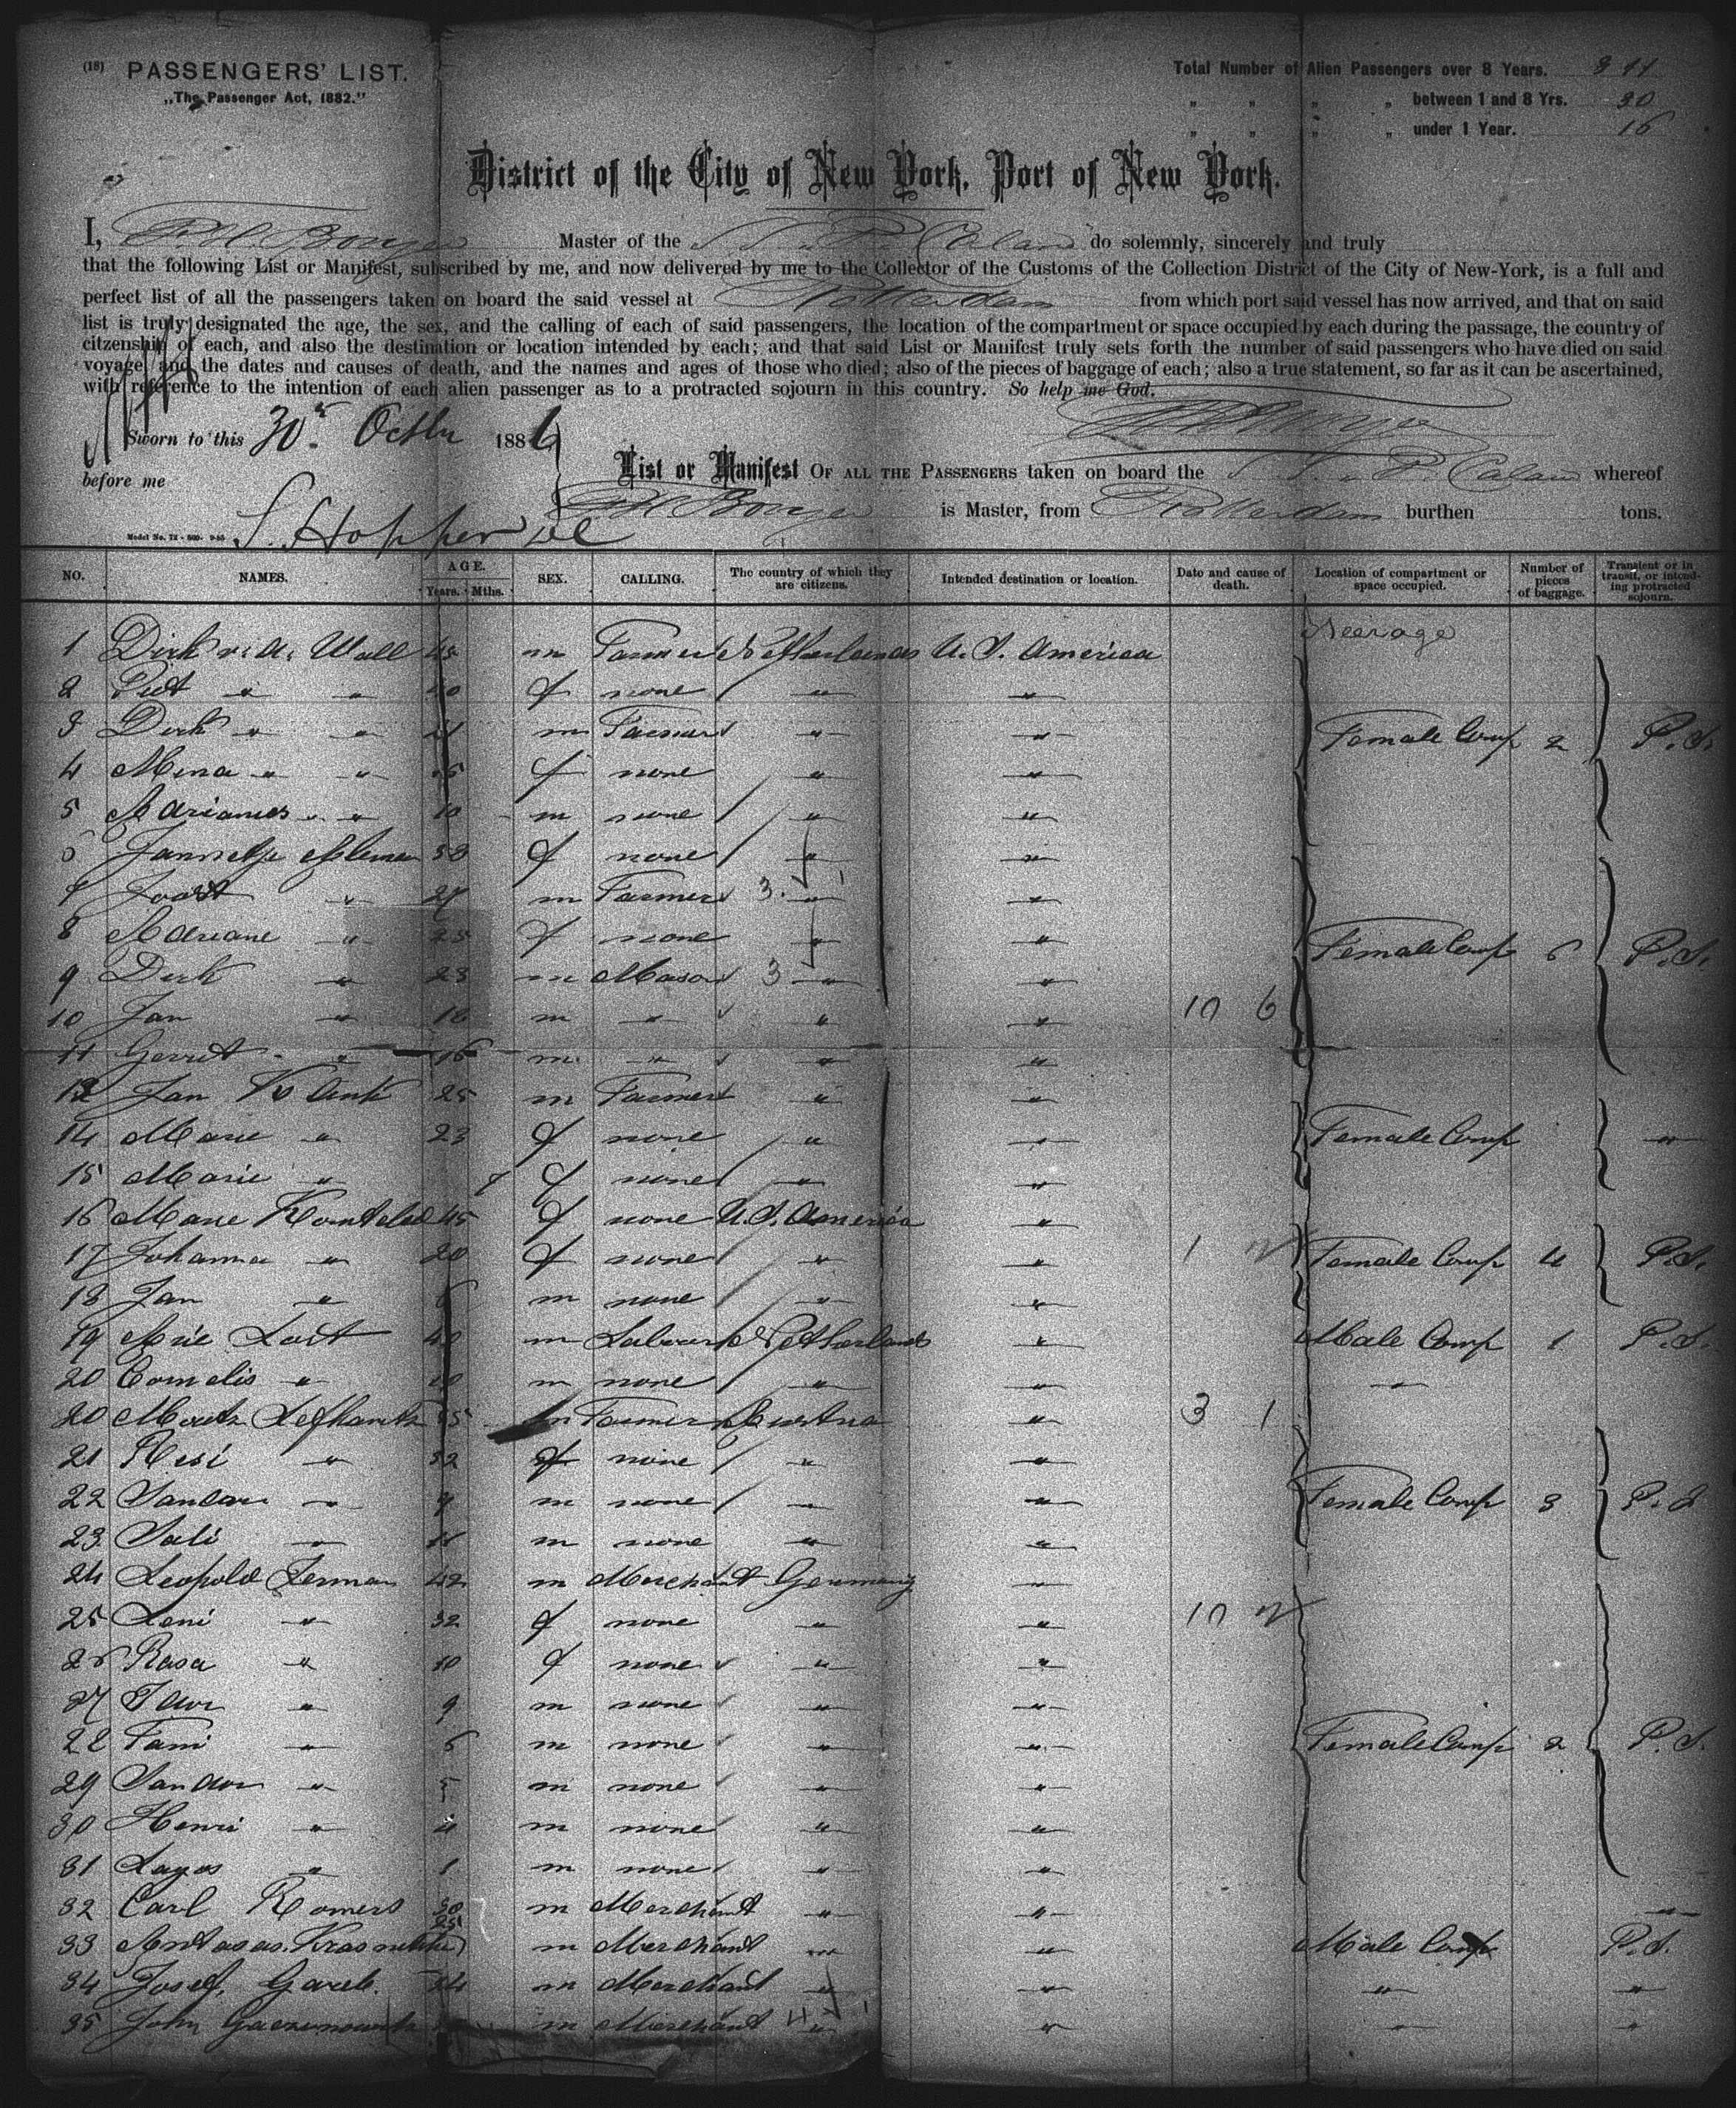 (18) PASSENGERS' LIST.
„The Passenger Act, 1882."
Total Number of Alien Passengers over 8 Years. 311
„ „ „ „ between 1 and 8 Yrs. 30
„ „ „ „ under 1 Year. 16
District of the City of New York, Port of New York.
I, Master of the P. Caland do solemnly, sincerely and truly
that the following List or Manifest, subscribed by me, and now delivered by me to the Collector of the Customs of the Collection District of the City of New-York, is a full and
perfect list of all the passengers taken on board the said vessel at Rotterdam from which port said vessel has now arrived, and that on said
list is truly designated the age, the sex, and the calling of each of said passengers, the location of the compartment or space occupied by each during the passage, the country of
citzenship of each, and also the destination or location intended by each; and that said List or Manifest truly sets forth the number of said passengers who have died on said
voyage, and the dates and causes of death, and the names and ages of those who died; also of the pieces of baggage of each; also a true statement, so far as it can be ascertained,
with reference to the intention of each alien passenger as to a protracted sojourn in this country. So help me God.
Sworn to this 30 Octbr 1886
before me
List or Manifest OF ALL THE PASSENGERS taken on board the P. Caland whereof
is Master, from Rotterdam burthen tons.
S. Hopper
NO. NAMES. AGE. Years. Mths. SEX. CALLING. The country of which they are citizens. Intended destination or location. Date and cause of death. Location of compartment or space occupied. Number of pieces of baggage. Transient or in transit, or intending protracted sojourn.
Steerage
1 Dirk v. d. Wall 45 m Farmer Netherlands U. S. America
2 Piet " " 40 f none " "
3 Dirk " " m Farmer " " Female Comp 2 P. S.
4 Mina " " f none " "
5 Adrianus " " 10 m none " "
6 Jannetje f none " "
7 Joost " 27 m Farmer 3. " "
8 Adriane " 25 f none " " Female Comp 6 P. S.
9 Dirk " 23 m Mason 3 " "
10 Jan " 18 m " " " 10 6
11 Gerrit " 16 m " " "
Jan 25 m Farmer " "
14 Marie " 23 f none " " Female Comp "
15 Marie " 7 f none " "
16 Marie 45 f none U. S. America "
17 Johanna " 20 f none " " 1 Female Comp 4 P. S.
18 Jan " m none " "
19 Arie 40 m Labourer Netherlands " Male Comp 1 P. S.
20 Cornelis " m none " " "
20 m Farmer Austria " 3 1
21 Resi " 32 f none " "
22 Sandor " m none " " Female Comp 3 P. S.
23 Sali " m none " "
24 Leopold 42 m Merchant Germany "
25 Leni " 32 f none " " 10
26 Rosa " 10 f none " "
27 " 9 m none " "
28 Fani " m none " " Female Comp 2 P. S.
29 Sandor " 5 m none " "
30 Henri " 4 m none " "
31 " 1 m none " "
32 Carl Romers 30 m Merchant " " "
33 25 m Merchant " " Male Comp P. S.
34 Josef 24 m Merchant " " " "
35 John m Merchant " " " "